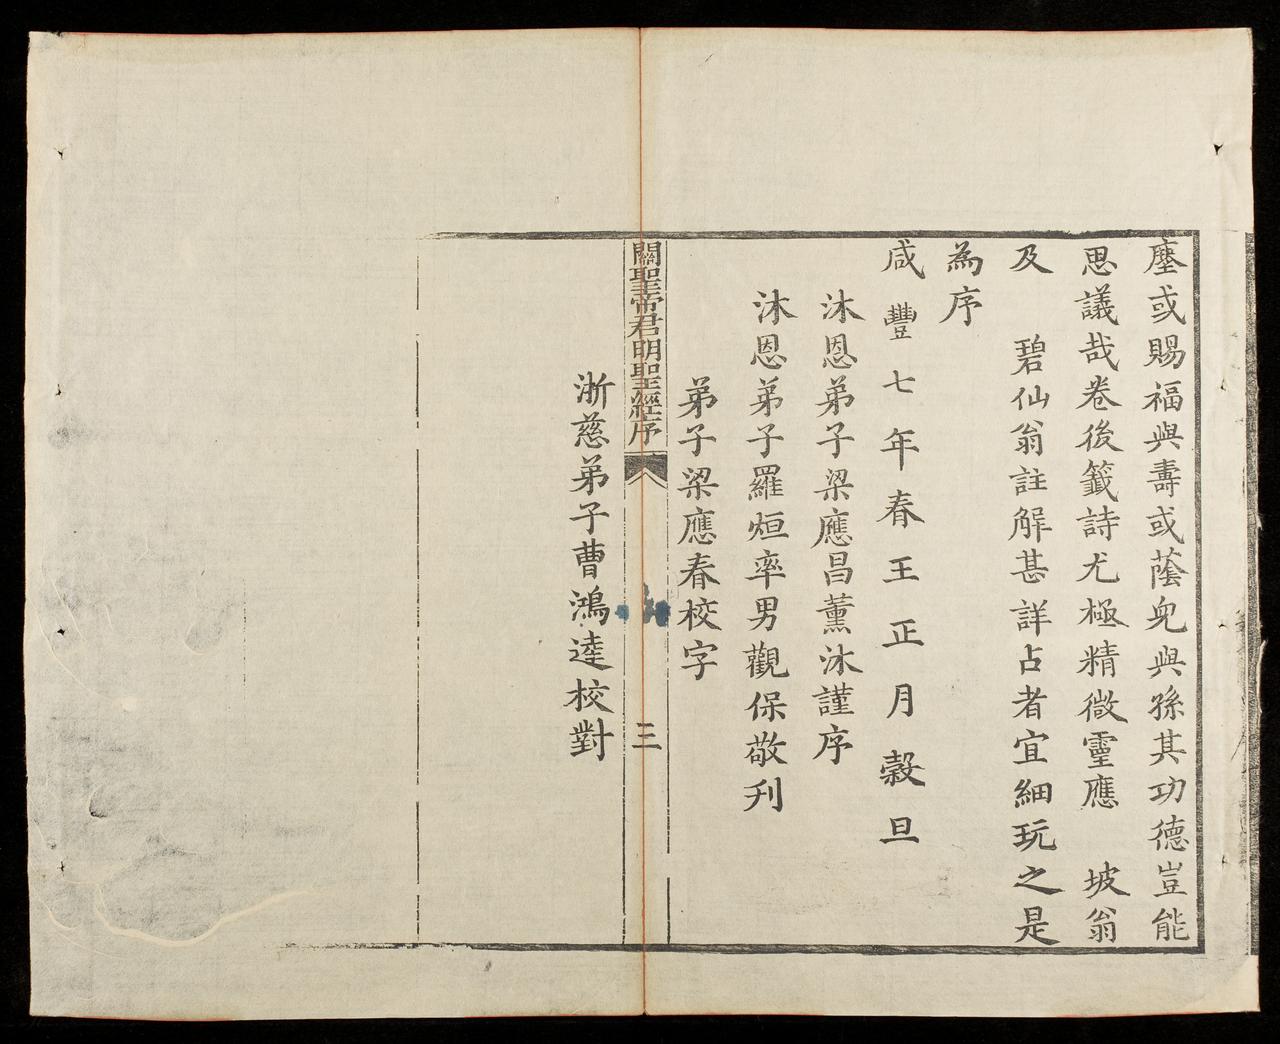 塵或賜福與壽或蔭兒與孫其功德豈能
思議哉卷後籤詩尤極精微靈應　坡翁
及　碧仙翁註解甚詳占者宜細玩之是
為序
咸豐七年春王正月穀旦
沐恩弟子梁應昌薰沐謹序
沐恩弟子羅烜率男觀保敬刋
弟子梁應春校字
關聖帝君明聖經序
三
浙慈弟子曹鴻逵校對